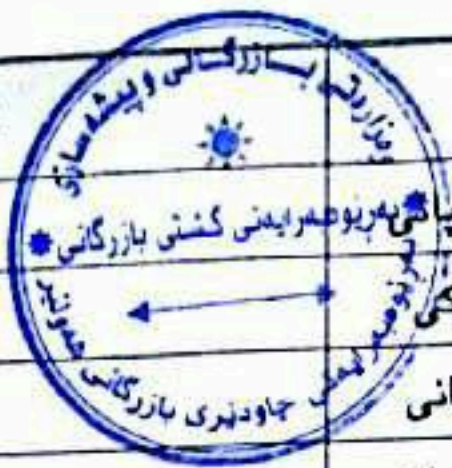 وەزارەتی بــازرگــانی و پیشەسازی
بەڕێوەبەرایەتی گشتی بازرگانی
بەڕێوەبەرایەتی چاودێری بازرگانی هەولێر